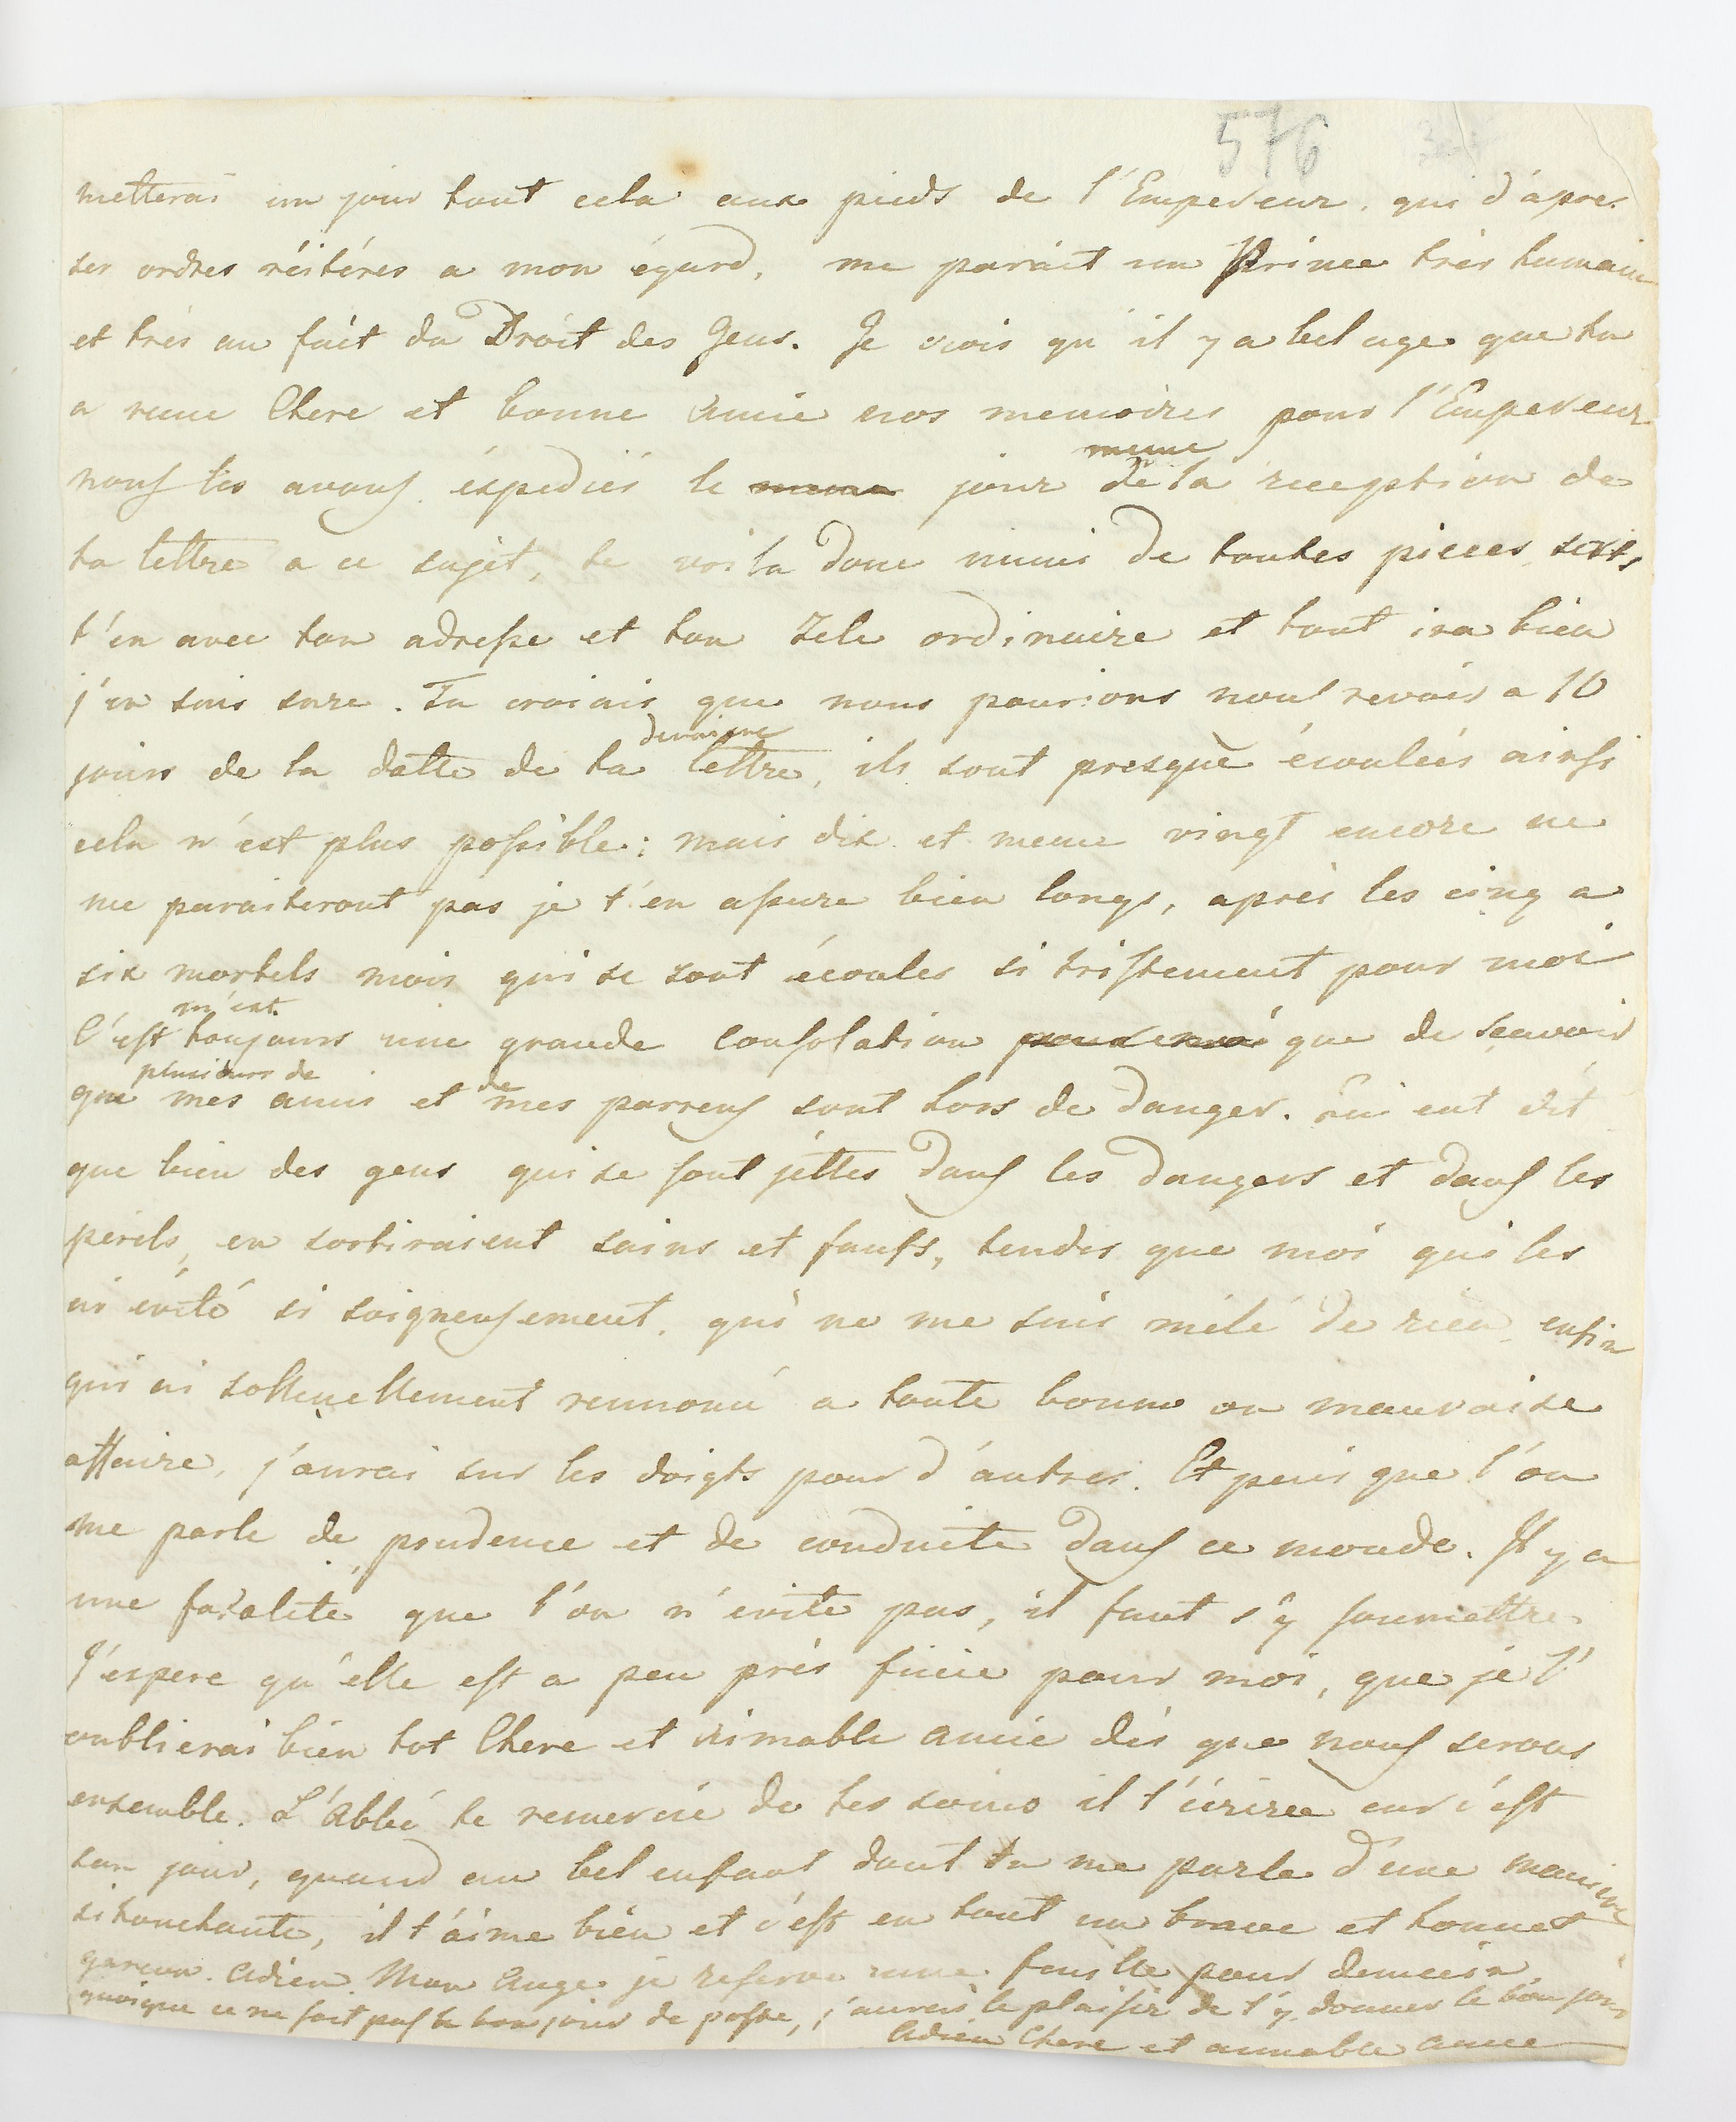 576
metterai un jour tout cela aux pieds de l'Empereur, qui d'apres
ses ordres réitérés a mon égard, me parait un Prince très humain
et très au fait du Droit des Gens. Je crois qu'il y a bel age que tu
a recue Chere et bonne Amie nos memoires pour l'Empereur
nous les avons éxpediés le meme jour
meme
de la reception de
ta lettre a ce sujet, te voila donc muni de toutes pieces, sers
t'en avec ton adresse et ton zele ordinaire et tout ira bien
j'en suis sure. Tu croiais que nous pourions nous revoir a 10
derniere
jours de la datte de ta lettre, ils sont presquè écoulées ainsi
cela n'est plus possible; mais dix et meme vingt encore ne
me paraiteront pas je t'en assure bien longs, après les cinq a
six mortels mois qui se sont écoules si tristement pour moi
m'est
C'est toujours une grande Consolation pour moi que de scavoir
plusieurs de
de
que mes amis et mes parrens sont hors de danger. Qui eut dit
que bien des gens qui se sont jéttes dans les dangers et dans les
perils, en sortiraient sains et saufs, tendis que moi qui les
ai évité si soigneusement, qui ne me suis mélé de rien, enfin
qui ai sollenellement rennoncé a toute bonne ou mauvaise
affaire, j'aurai sur les doigts pour d'autres. Et puis que l'on
me parle de prudence et de conduite dans ce monde. Il y a
une fatalité que l'on n'évite pas, il faut s'y soumettre.
J'espere qu'elle est a peu près finie pour moi, que je l'
oublierai bien tot Chere et aimable amie dès que nous serons
ensemble. L'Abbé te remercie de tes soins il t'écrire car c'est
son jour, quand au bel enfant dont tu me parle d'une maniere
si touchante, il t'aime bien et c'est en tout un brave et honnet
garcon. Adieu Mon Ange je reserve une feuille pour demain
quoique ce ne soit pas le bon jour de poste, j'aurai le plaisir de t'y donner le bon jour
Adieu Chere et aimable amie